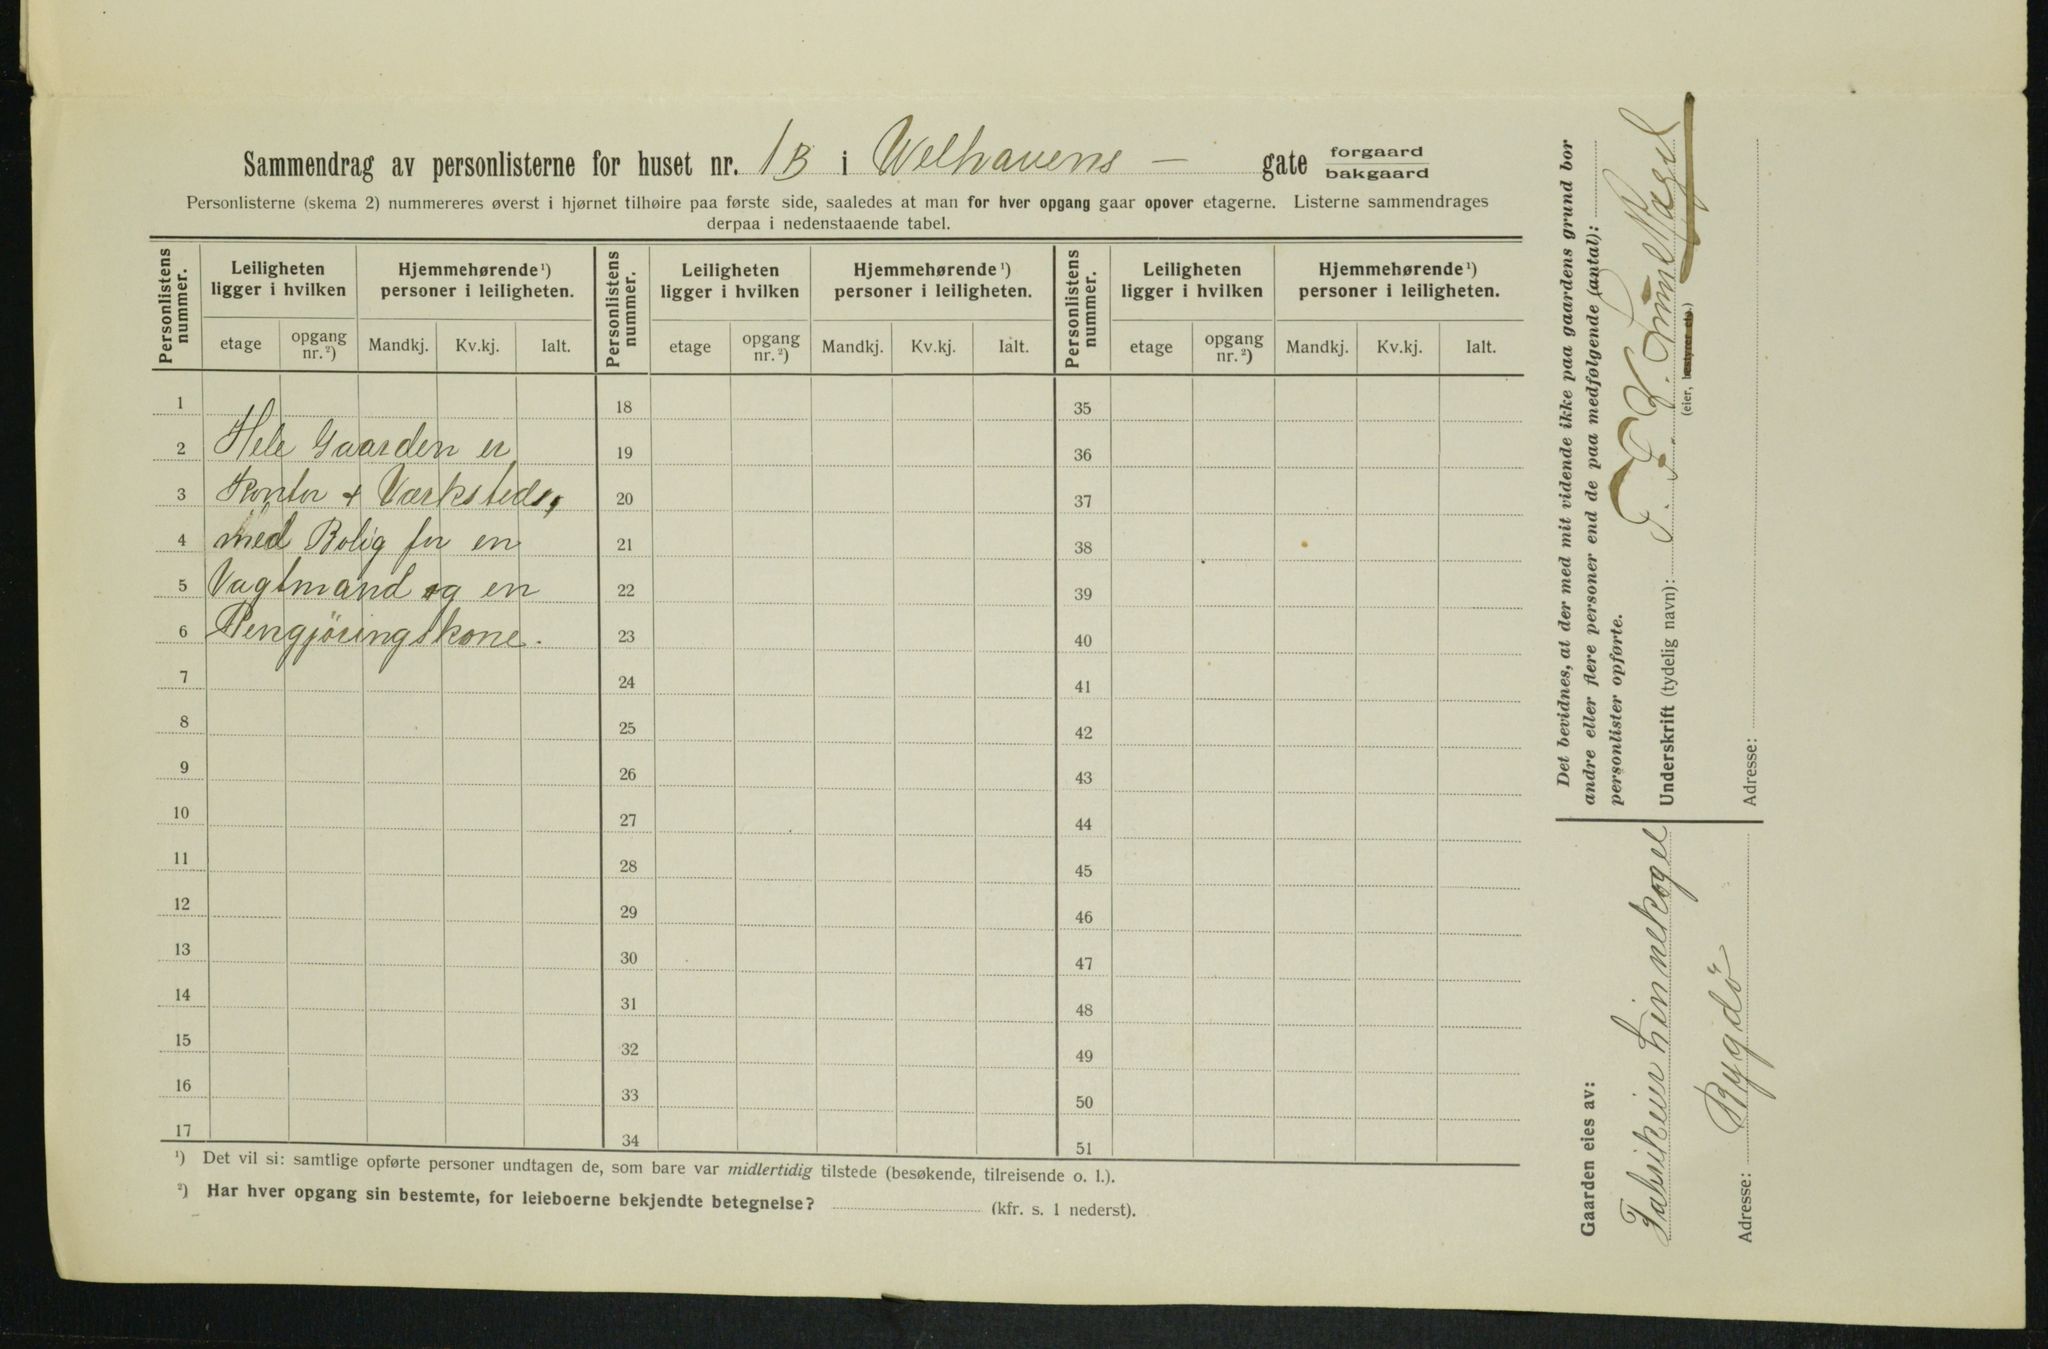 Sammendrag av personlisterne for huset nr. 1B i Welhavens — gate forgaard bakgaard
Personlisterne (skema 2) nummereres øverst i hjørnet tilhøire paa første side, saaledes at man for hver opgang gaar opover etagerne. Listerne sammendrages
derpaa i nedenstaaende tabel.
Personlistens nummer. Leiligheten ligger i hvilken Hjemmehørende ¹) personer i leiligheten. Personlistens nummer. Leiligheten ligger i hvilken Hjemmehørende ¹) personer i leiligheten. Personlistens nummer. Leiligheten ligger i hvilken Hjemmehørende ¹) personer i leiligheten.
etage opgang nr. ²) Mandkj. Kv.kj. Ialt. etage opgang nr. ²) Mandkj. Kv.kj. Ialt. etage opgang nr. ²) Mandkj. Kv.kj. Ialt.
1 18 35
2 Hele Gaarden er 19 36
3 Kontor + Værksteds, 20 37
4 med Bolig for en 21 38
5 Vagtmand og en 22 39
6 Rengjöringskone. 23 40
7 24 41
8 25 42
9 26 43
10 27 44
11 28 45
12 29 46
13 30 47
14 31 48
15 32 49
16 33 50
17 34 51
¹) Det vil si: samtlige opførte personer undtagen de, som bare var midlertidig tilstede (besøkende, tilreisende o. l.).
²) Har hver opgang sin bestemte, for leieboerne bekjendte betegnelse? (kfr. s. 1 nederst).
Gaarden eies av:
Adresse: Bygdö
Det bevidnes, at der med mit vidende ikke paa gaardens grund bor
andre eller flere personer end de paa medfølgende (antal):
personlister opførte.
Underskrift (tydelig navn):
(eier, bestyrer do.)
Adresse: